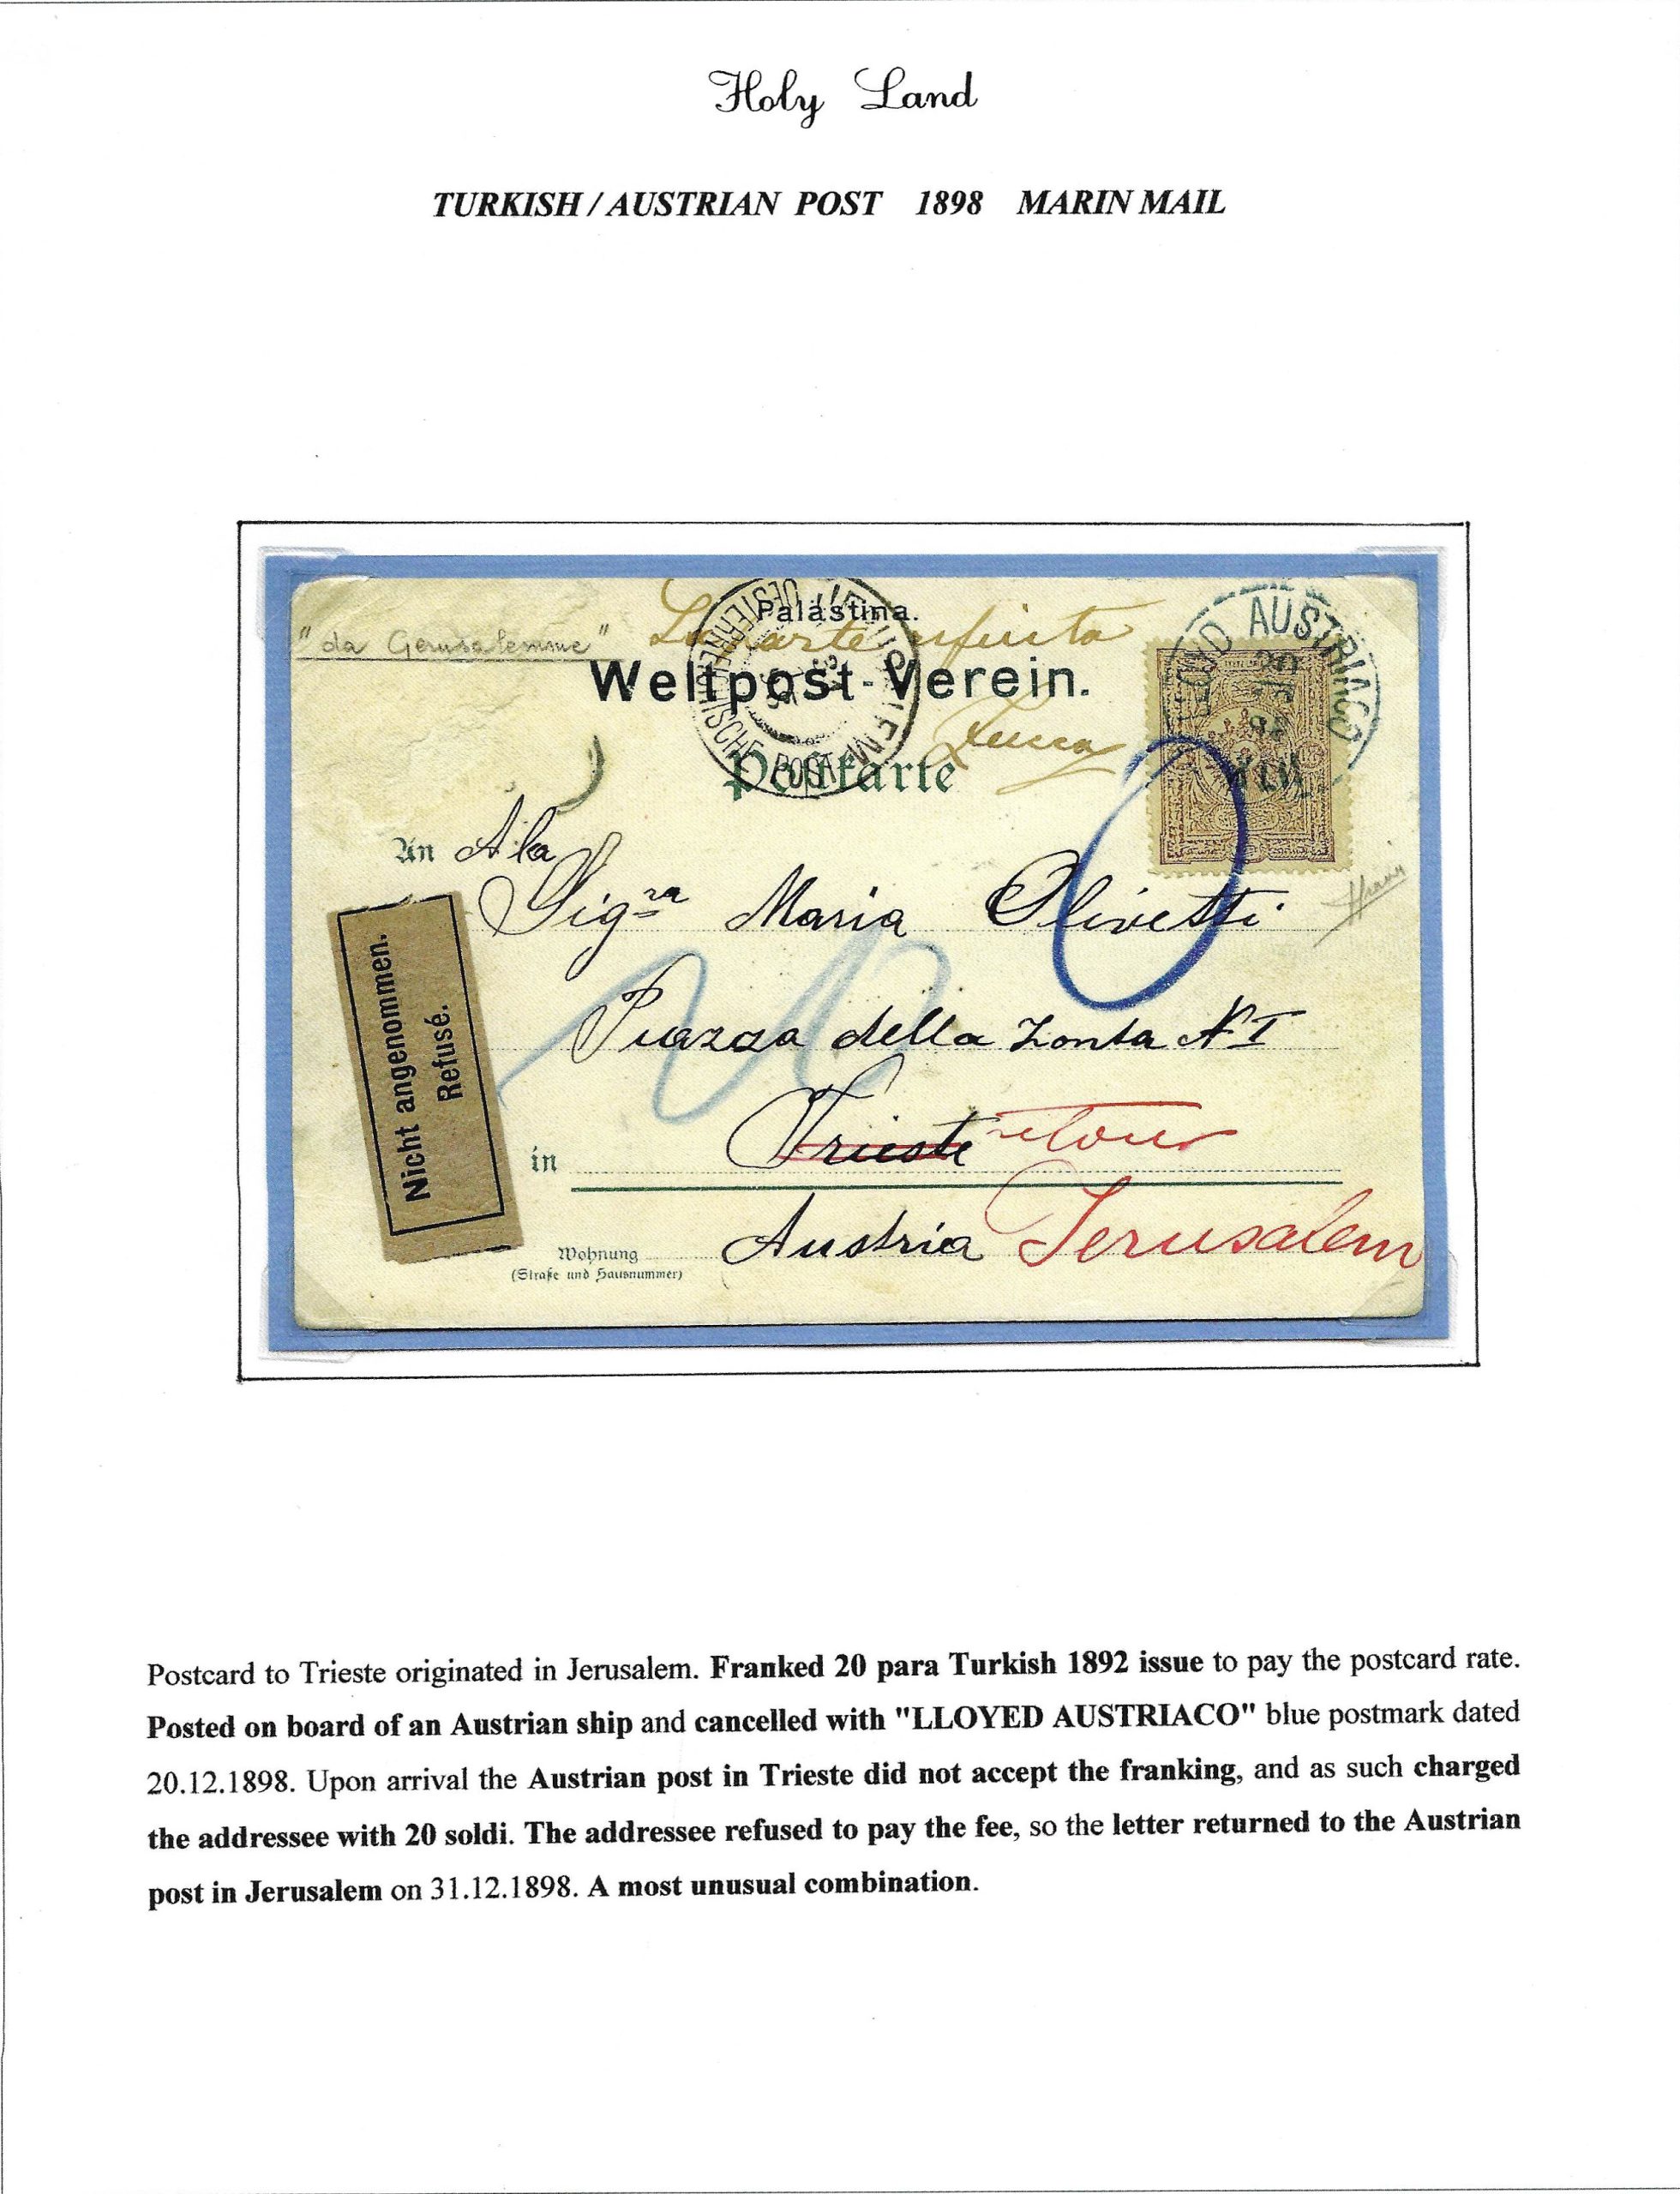 Holy Land
TURKISH / AUSTRIAN POST 1898 MARIN MAIL
"da Gerusalemme"
Palästina.
Weltpost-Verein.
Postkarte
JERUSALEM
OESTERREICHISCHE POST
LLOYD AUSTRIACO
20
98
XLVI
An A la
Sigra Maria Olivetti
Piazza della Zonta No I
in Trieste retour
Austria Jerusalem
Wohnung
(Straße und Hausnummer)
Nicht angenommen.
Refusé.
Postcard to Trieste originated in Jerusalem. Franked 20 para Turkish 1892 issue to pay the postcard rate.
Posted on board of an Austrian ship and cancelled with "LLOYED AUSTRIACO" blue postmark dated
20.12.1898. Upon arrival the Austrian post in Trieste did not accept the franking, and as such charged
the addressee with 20 soldi. The addressee refused to pay the fee, so the letter returned to the Austrian
post in Jerusalem on 31.12.1898. A most unusual combination.